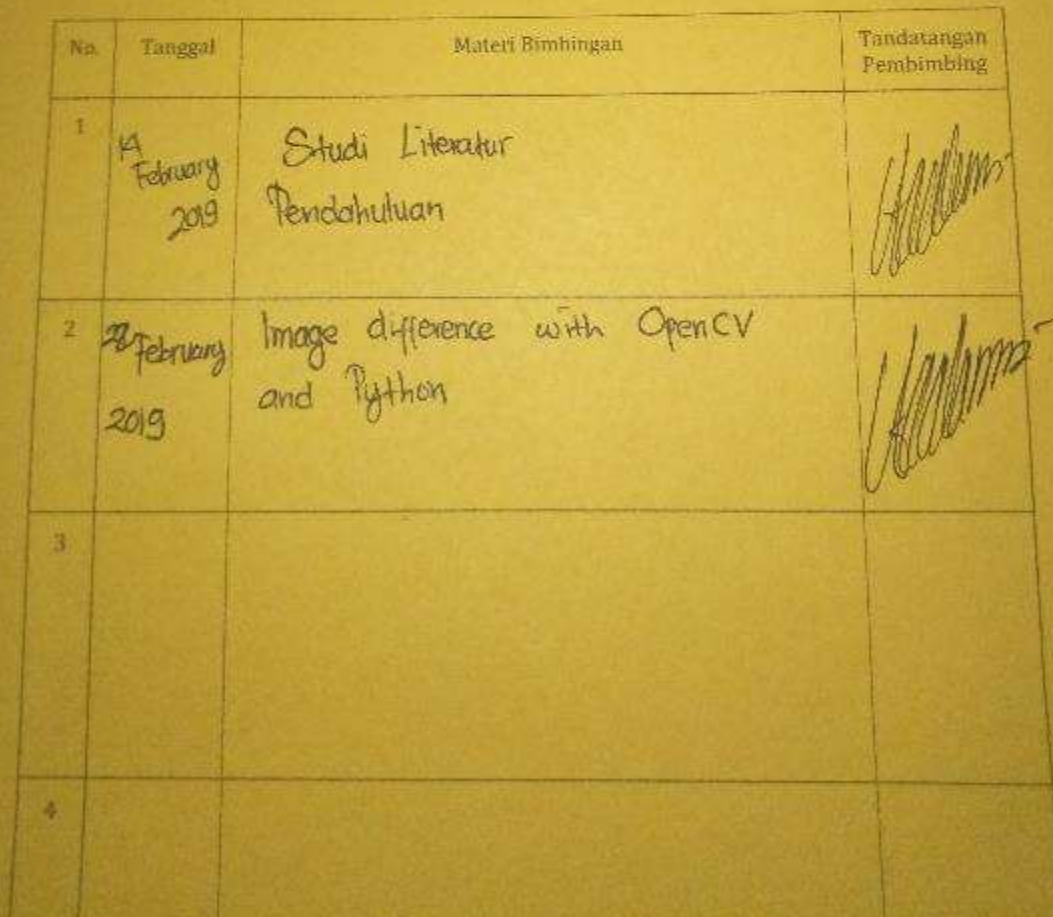 No. Tanggal Materi Bimbingan Tandatangan
Pembimbing
1
14
February
2019
Studi Literatur
Pendahuluan
2
February
2019
Image difference with OpenCV
and Python
3
4